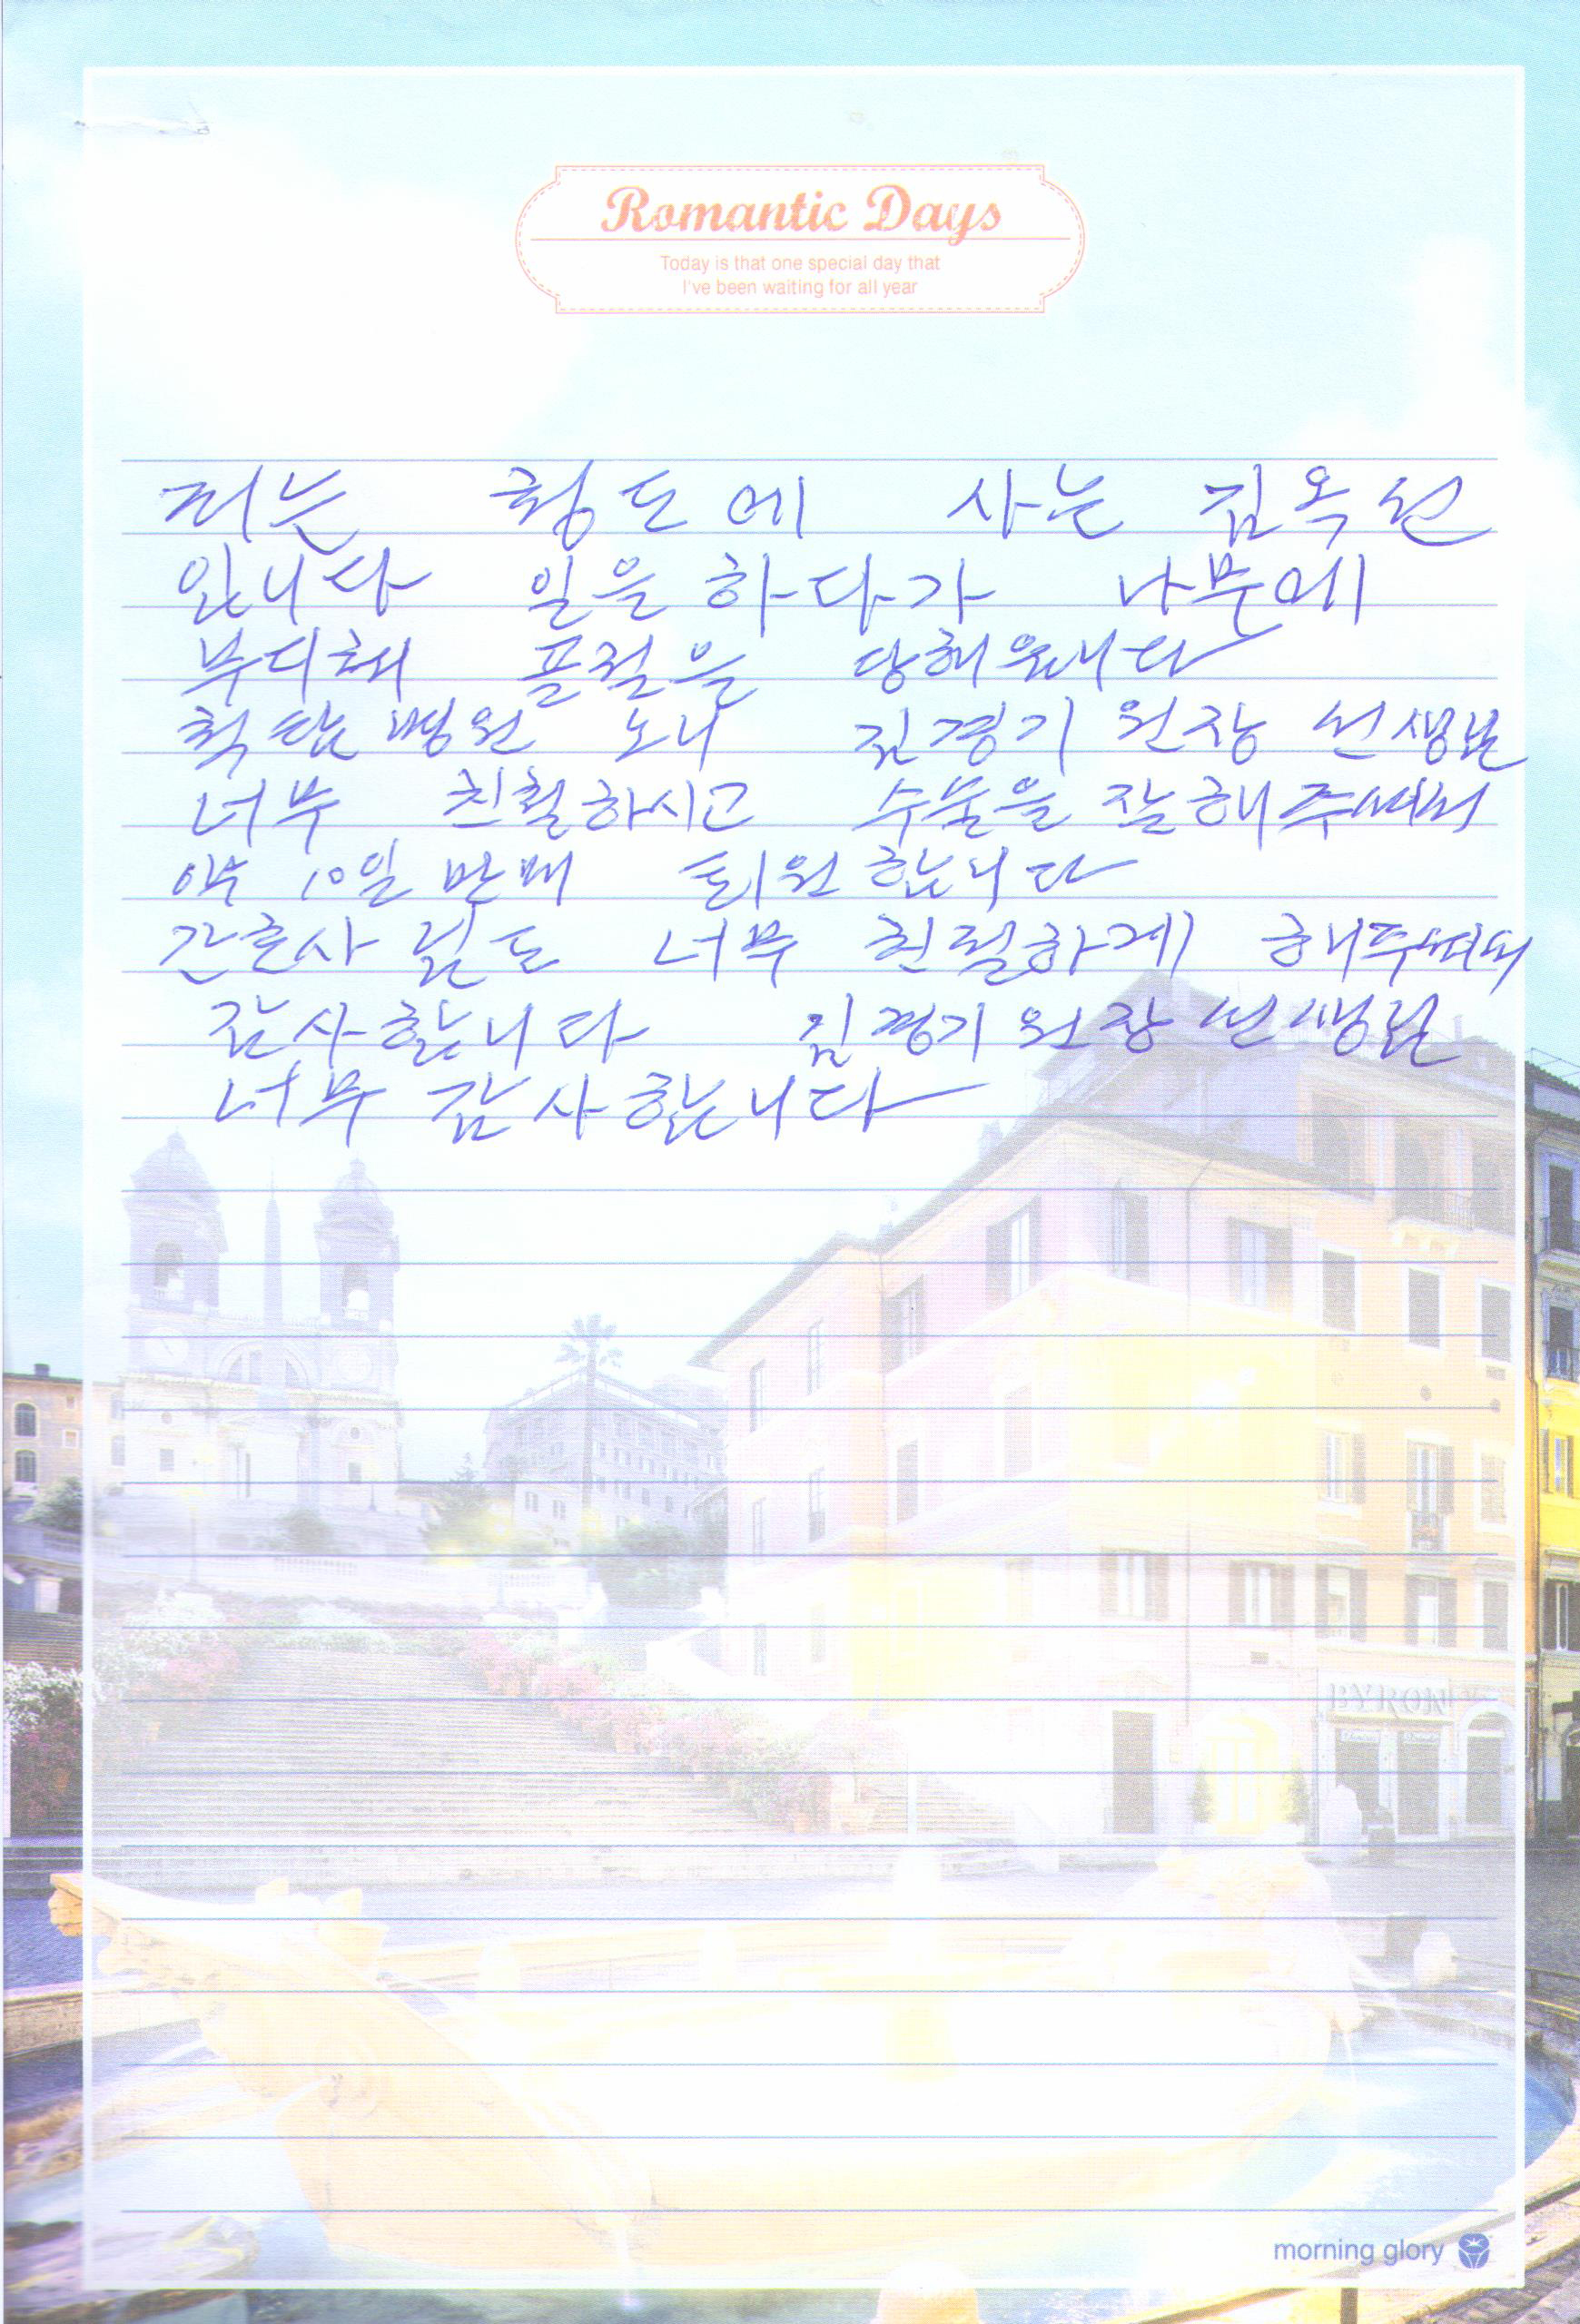 Romantic Days
Today is that one special day that
I've been waiting for all year
저는 청도에 사는 김옥선
입니다 일을 하다가 나무에
부디쳐 골절을 당해
척탑병원 노니 김경기 원장 선생님
너무 친철하시고 수술을 잘해주
약 10일 만에 퇴원합니다
간호사 님도 너무 친절하게 해주
감사합니다 김경기 원장 선생님
너무 감사합니다
morning glory